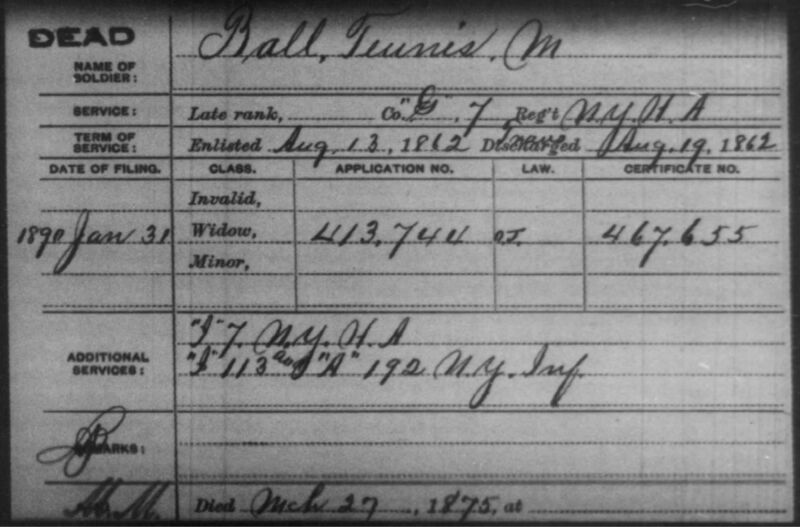 DEAD
Ball, Teunis, M
NAME OF SOLDIER:
SERVICE: Late rank, Co. "G", 7 Reg't N.Y.H.A
TERM OF SERVICE: Enlisted Aug. 13, 1862 Discharged Aug. 19, 1862
DATE OF FILING. CLASS. APPLICATION NO. LAW. CERTIFICATE NO.
Invalid,
1890 Jan 31 Widow, 413.744 O.J. 467.655
Minor,
ADDITIONAL SERVICES: "I" 7. N.Y. H. A
"I" 113 and "A" 192 N.Y. Inf.
REMARKS:
Died Mch 27, 1875, at